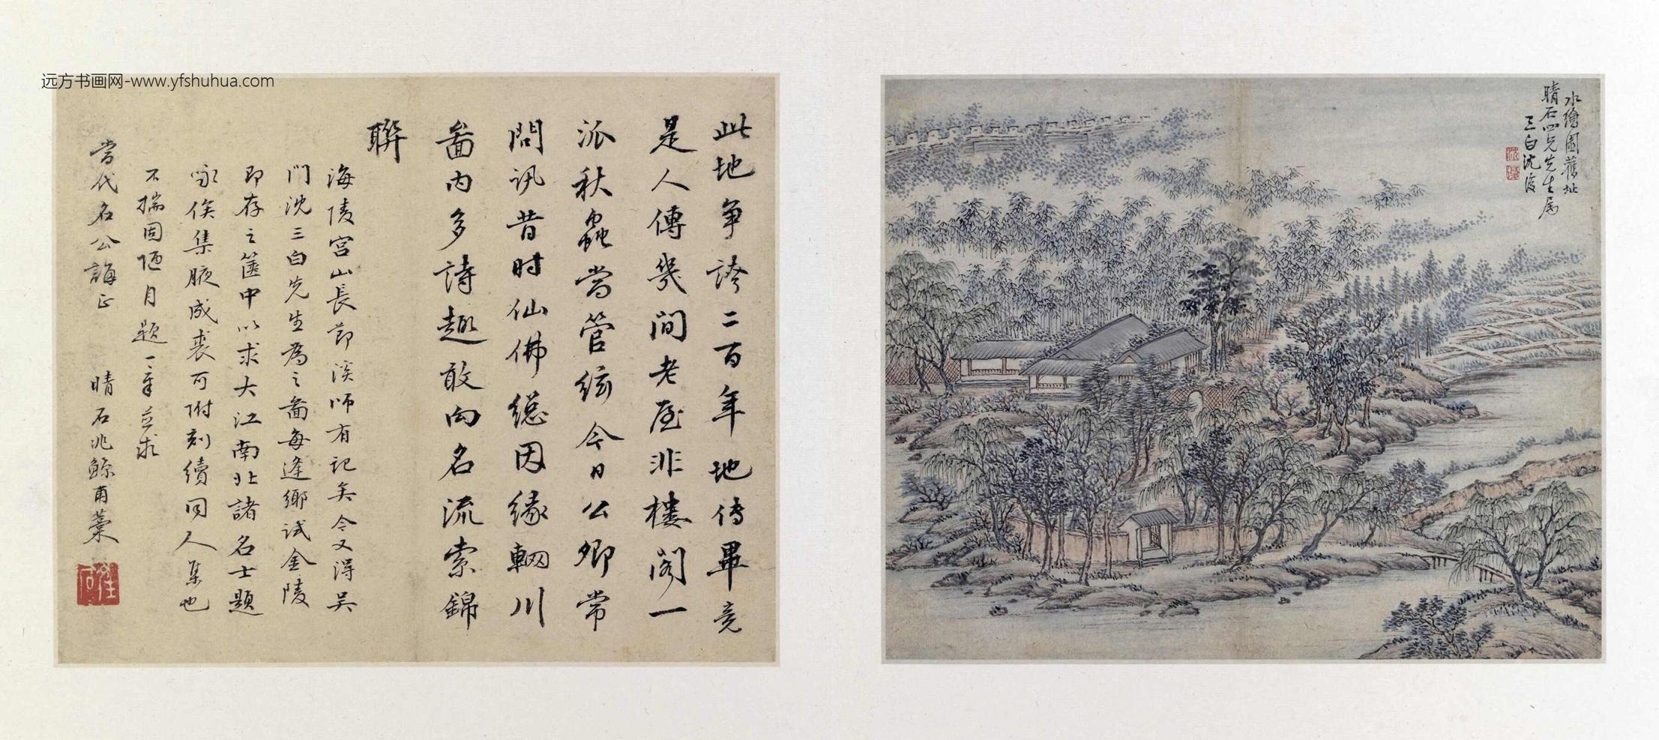 远方书画网-www.yfshuhua.com
水繪園舊址
晴石四兄先生属
三白沈復
此地争誇二百年地傳畢竟
是人傳幾間老屋非樓阁一
派秋蟲當管絃今日公卿常
問訊昔时仙佛總因缘輞川
啚内多詩趣敢向名流索錦
聨
海陵宫山長節溪师有記矣今又淂吴
门沈三白先生為之啚每逢鄉试金陵
即存之箧中以求大江南北諸名士題
咏俟集腋成裘可附刻續同人集也
不揣固陋自题一章並求
當代名公誨正
晴石兆鲸甫藁